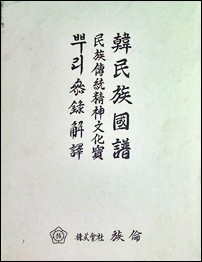 韓民族國譜
民族傳統精神文化寶
뿌리參錄解譯
株式會社 族倫